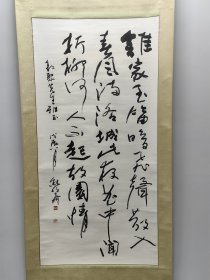 誰家玉笛暗飛聲散入
春風滿洛城此夜曲中聞
折柳何人不起故園情